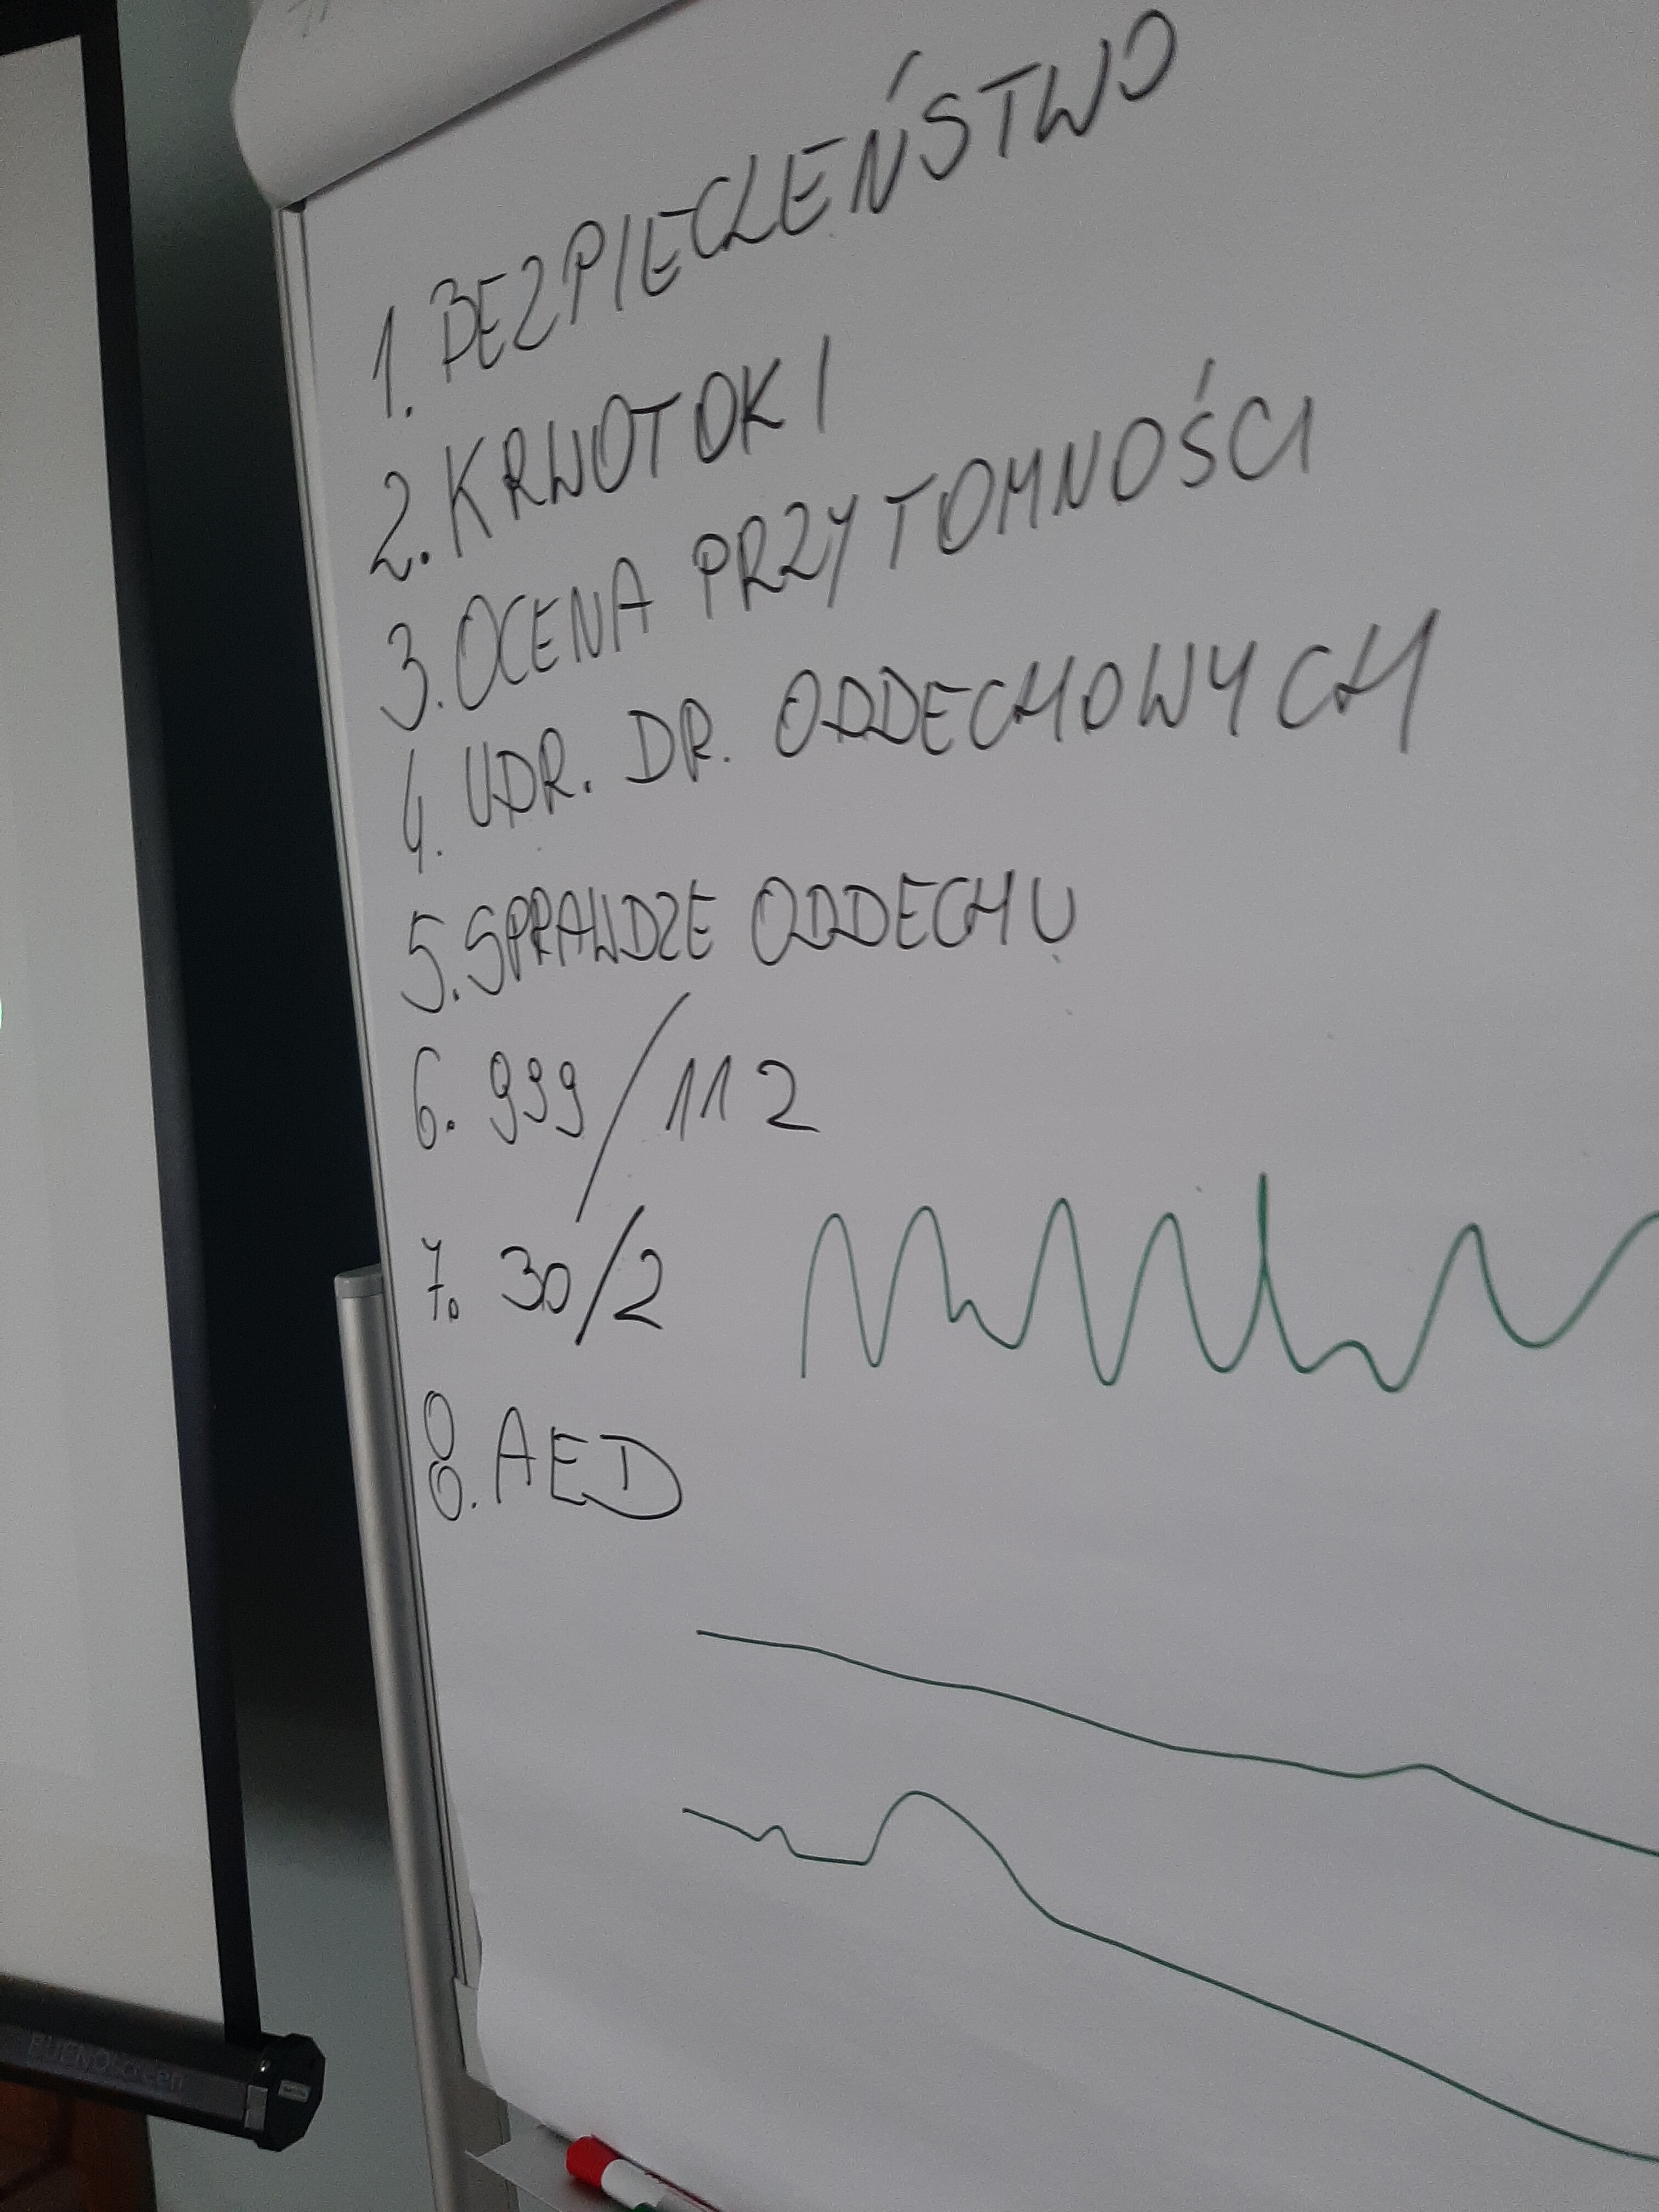 1. BEZPIECZEŃSTWO
2. KRWOTOKI
3. OCENA PRZYTOMNOŚCI
4. UDR. DR. ODDECHOWYCH
5. SPRAWDZE ODDECHU
6. 999/112
7. 30/2
8. AED